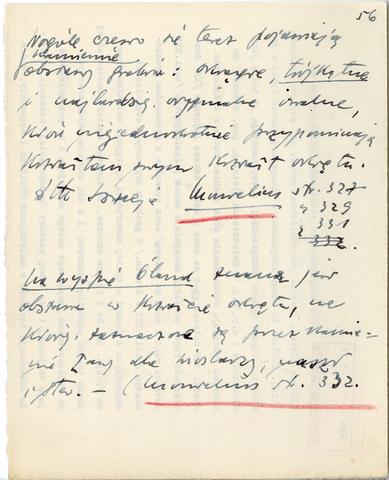 56
Wogóle często się teraz pojawiają
kamienne
obstawy grobów: okrągłe, trójkątne
i najbardziej oryginalne owalne,
które niejednokrotnie przypominają
kształtem swym kształt okrętu.
Montelius str. 327
" 329
" 331
" 332.
Na wyspie Öland znana jest
obstawa w kształcie okrętu, na
której zaznaczone są przez kamie-
nie ławy dla wioślarzy, maszt
i ster. – (Montelius str. 332.